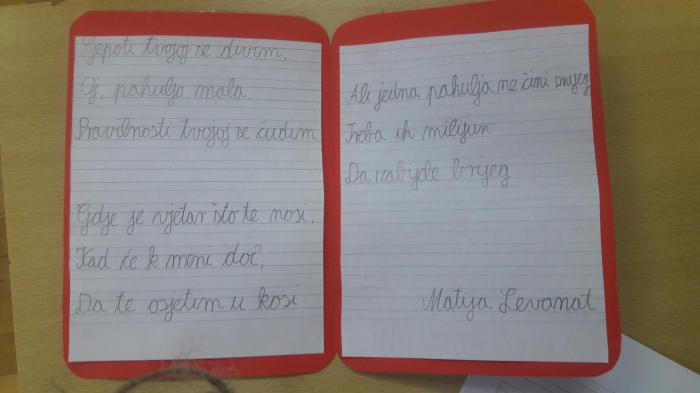 Ljepoti tvojoj se divim,
Oj, pahuljo mala.
Pravilnosti tvojoj se čudim
Gdje je vjetar što te nosi,
Kad će k meni doć',
Da te osjetim u kosi.
Ali jedna pahulja ne čini snijeg
Treba ih milijun
Da zabijele brijeg
Matija Levanat